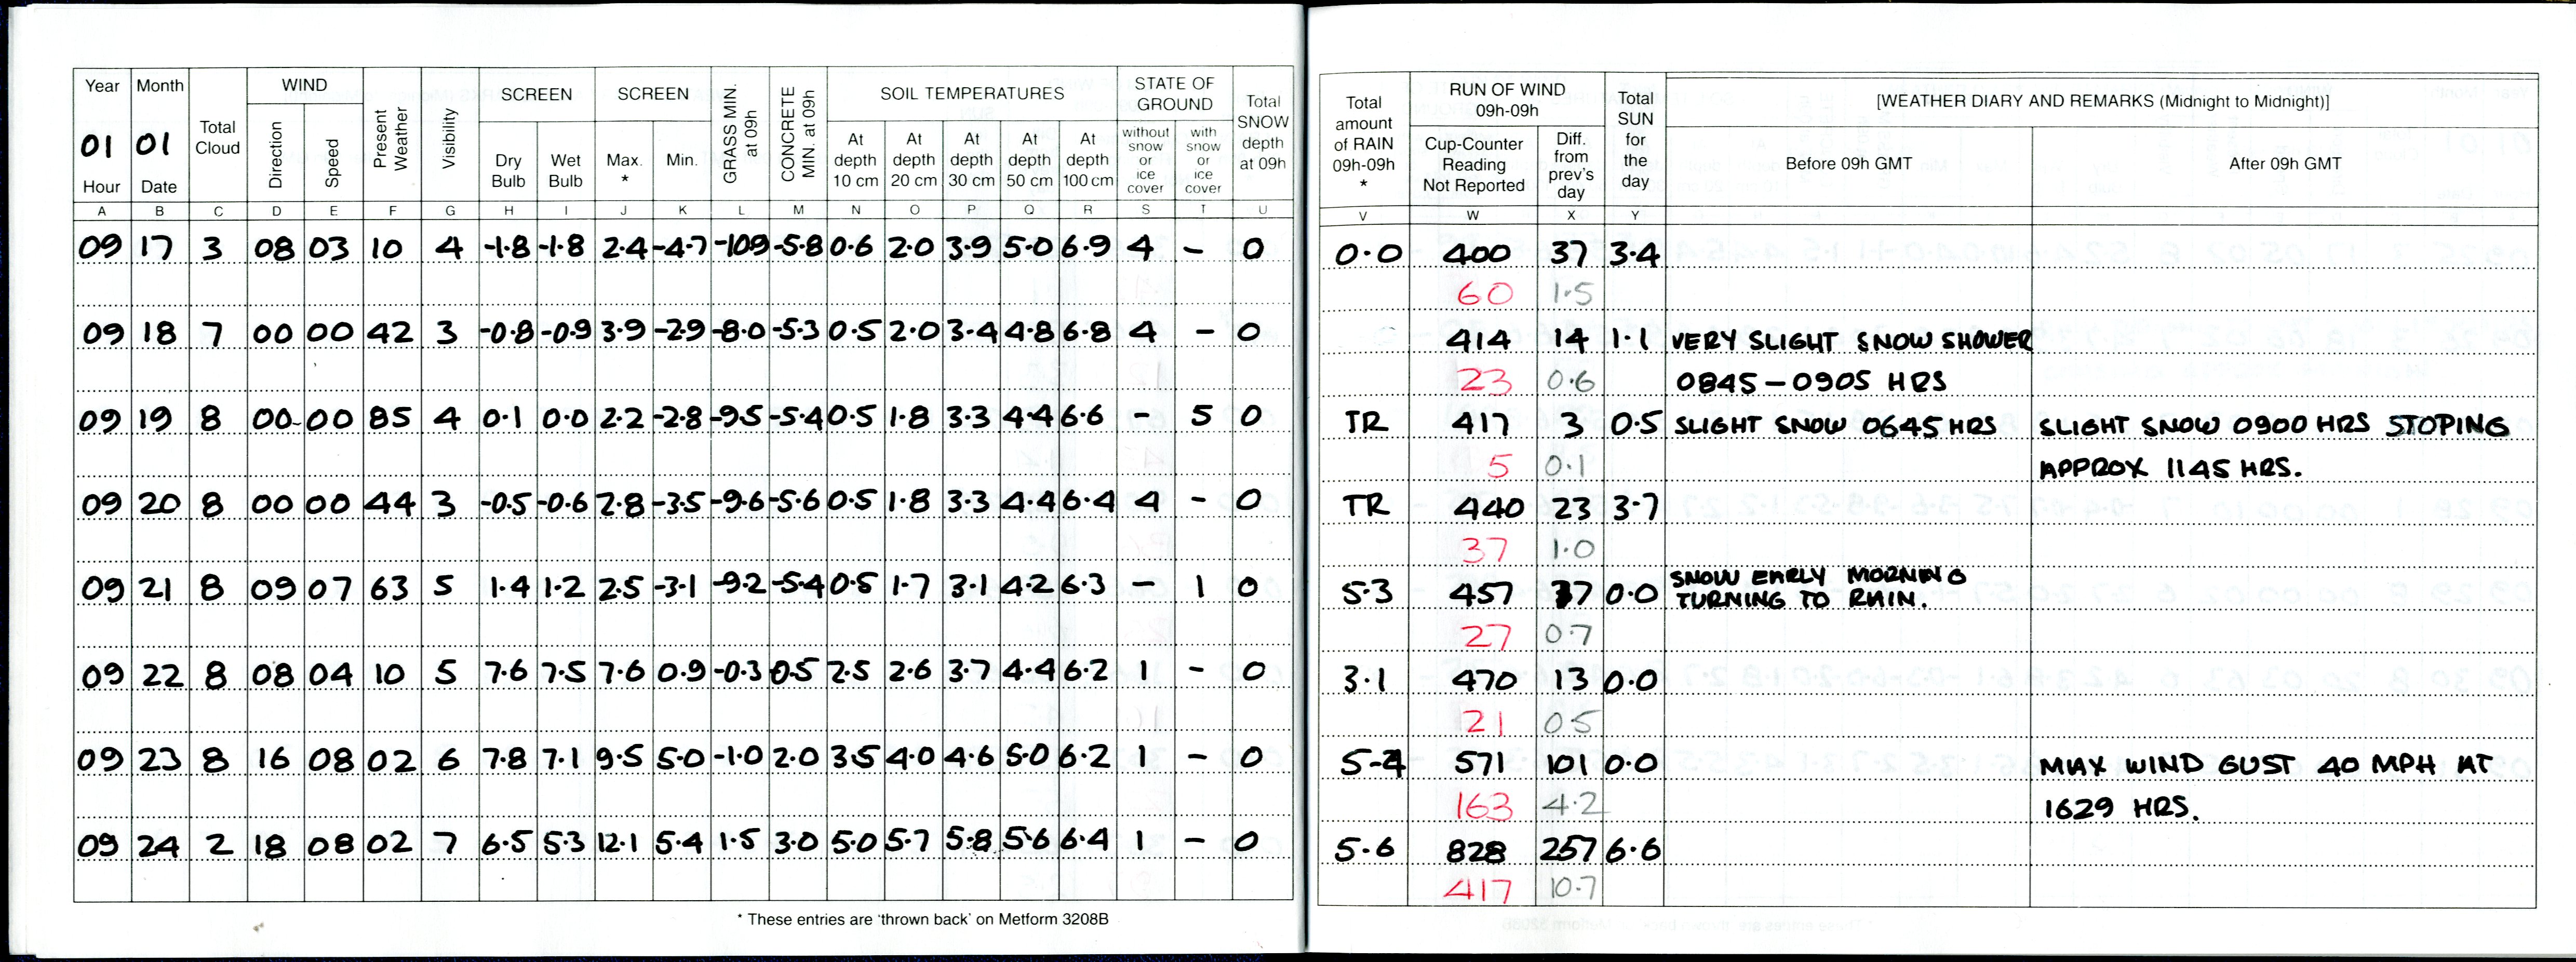 Year Month Total Cloud WIND Present Weather Visibility SCREEN SCREEN GRASS MIN. at 09h CONCRETE MIN. at 09h SOIL TEMPERATURES STATE OF GROUND Total SNOW depth at 09h
01 01 Direction Speed Dry Bulb Wet Bulb Max. * Min. At depth 10 cm At depth 20 cm At depth 30 cm At depth 50 cm At depth 100 cm without snow or ice cover with snow or ice cover
Hour Date
A B C D E F G H I J K L M N O P Q R S T U
09 17 3 08 03 10 4 -1.8 -1.8 2.4 -4.7 -109 -5.8 0.6 2.0 3.9 5.0 6.9 4 - 0
09 18 7 00 00 42 3 -0.8 -0.9 3.9 -2.9 -8.0 -5.3 0.5 2.0 3.4 4.8 6.8 4 - 0
09 19 8 00 00 85 4 0.1 0.0 2.2 -2.8 -9.5 -5.4 0.5 1.8 3.3 4.4 6.6 - 5 0
09 20 8 00 00 44 3 -0.5 -0.6 2.8 -3.5 -9.6 -5.6 0.5 1.8 3.3 4.4 6.4 4 - 0
09 21 8 09 07 63 5 1.4 1.2 2.5 -3.1 -9.2 -5.4 0.5 1.7 3.1 4.2 6.3 - 1 0
09 22 8 08 04 10 5 7.6 7.5 7.6 0.9 -0.3 0.5 2.5 2.6 3.7 4.4 6.2 1 - 0
09 23 8 16 08 02 6 7.8 7.1 9.5 5.0 -1.0 2.0 3.5 4.0 4.6 5.0 6.2 1 - 0
09 24 2 18 08 02 7 6.5 5.3 12.1 5.4 1.5 3.0 5.0 5.7 5.8 5.6 6.4 1 - 0
* These entries are 'thrown back' on Metform 3208B
Total amount of RAIN 09h-09h * RUN OF WIND 09h-09h Total SUN for the day [WEATHER DIARY AND REMARKS (Midnight to Midnight)]
Cup-Counter Reading Not Reported Diff. from prev's day Before 09h GMT After 09h GMT
V W X Y
0.0 400 37 3.4
60 1.5
414 14 1.1 VERY SLIGHT SNOW SHOWER
23 0.6 0845-0905 HRS
TR 417 3 0.5 SLIGHT SNOW 0645 HRS SLIGHT SNOW 0900 HRS STOPING
5 0.1 APPROX 1145 HRS.
TR 440 23 3.7
37 1.0
SNOW EARLY MORNING
5.3 457 17 0.0 TURNING TO RAIN.
27 0.7
3.1 470 13 0.0
21 0.5
5-4 571 101 0.0 MAX WIND GUST 40 MPH AT
163 4.2 1629 HRS.
5.6 828 257 6.6
417 10.7